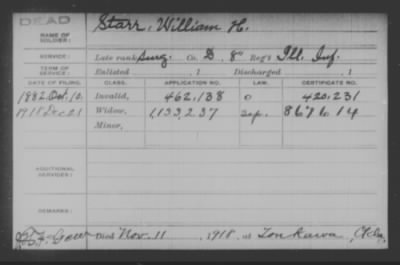 DEAD
NAME OF SOLDIER: Starr, William H.
SERVICE: Late rank Surg. Co. D, 8" Reg't Ill. Inf.
TERM OF SERVICE: Enlisted , 1 Discharged , 1
DATE OF FILING. CLASS. APPLICATION NO. LAW. CERTIFICATE NO.
1882 Oct. 10. Invalid, 462,138 420,231
1918 Dec 21 Widow, 1,133,237 867614
Minor,
ADDITIONAL SERVICES:
REMARKS:
Died Nov. 11, 1918, at Tonkawa, Okla,